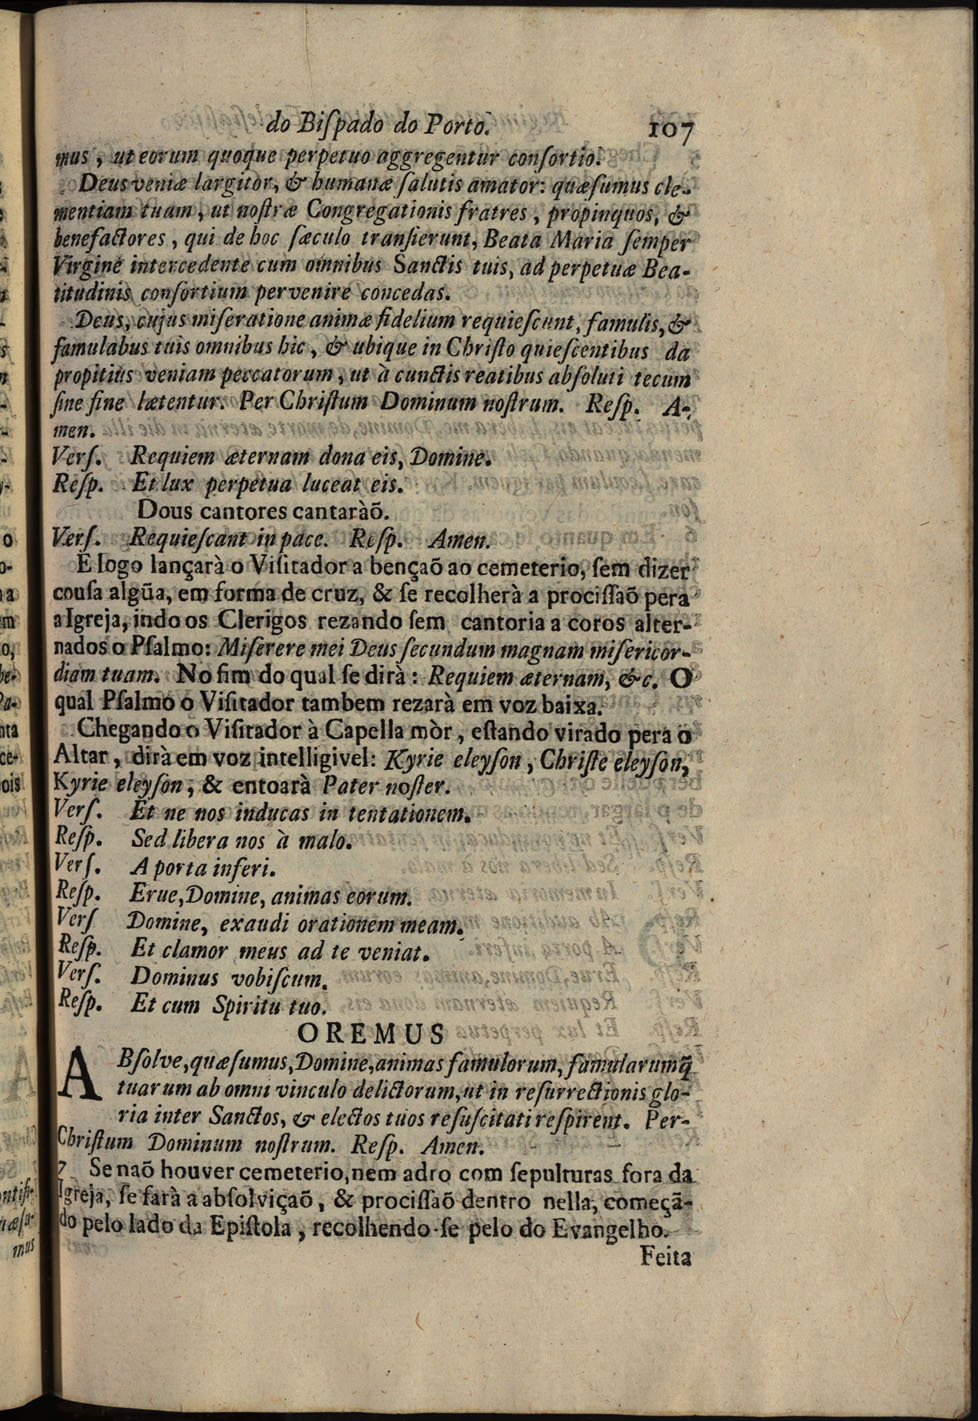 do Biſpado do Porto. 107
mus, ut eorum quoque perpetuo aggregentur conſortio.
Deus veniæ largitor, & humanæ ſalutis amator: quæſumus cle-
mentiam tuam, ut noſtræ Congregationis fratres, propinquos, &
benefactores, qui de hoc ſæculo tranſierunt, Beata Maria ſemper
Virgine intercedente cum omnibus Sanctis tuis, ad perpetuæ Bea-
titudinis conſortium pervenire concedas.
Deus, cujus miſeratione animæ fidelium requieſcunt, famulis, &
famulabus tuis omnibus hic, & ubique in Chriſto quieſcentibus da
propitius veniam peccatorum, ut à cunctis reatibus abſoluti tecum
ſine fine lætentur. Per Chriſtum Dominum noſtrum. Reſp. A-
men.
Verſ. Requiem æternam dona eis, Domine.
Reſp. Et lux perpetua luceat eis.
Dous cantores cantaràõ.
Verſ. Requieſcant in pace. Reſp. Amen.
E logo lançarà o Viſitador a bençaõ ao cemeterio, ſem dizer
couſa algũa, em forma de cruz, & ſe recolherà a prociſſaõ pera
a Igreja, indo os Clerigos rezando ſem cantoria a coros alter-
nados o Pſalmo: Miſerere mei Deus ſecundum magnam miſericor-
diam tuam. No fim do qual ſe dirà: Requiem æternam, &c. O
qual Pſalmo o Viſitador tambem rezarà em voz baixa.
Chegando o Viſitador à Capella mòr, eſtando virado pera o
Altar, dirà em voz intelligivel: Kyrie eleyſon, Chriſte eleyſon,
Kyrie eleyſon, & entoarà Pater noſter.
Verſ. Et ne nos inducas in tentationem.
Reſp. Sed libera nos à malo.
Verſ. A porta inferi.
Reſp. Erue, Domine, animas eorum.
Verſ Domine, exaudi orationem meam.
Reſp. Et clamor meus ad te veniat.
Verſ. Dominus vobiſcum.
Reſp. Et cum Spiritu tuo.
OREMUS
ABſolve, quæſumus, Domine, animas famulorum, famularumq̃
tuarum ab omni vinculo delictorum, ut in reſurrectionis glo-
ria inter Sanctos, & electos tuos reſuſcitati reſpirent. Per-
Chriſtum Dominum noſtrum. Reſp. Amen.
7 Se naõ houver cemeterio, nem adro com ſepulturas fora da
Igreja, ſe farà a abſolviçaõ, & prociſſaõ dentro nella, começã-
do pelo lado da Epiſtola, recolhendo-ſe pelo do Evangelho.
Feita